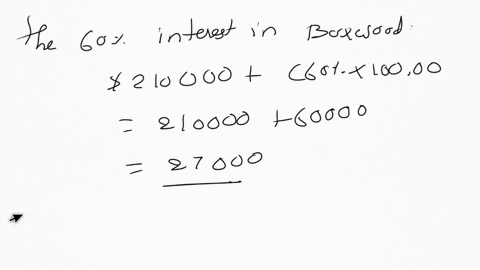 The 60% interest in Boxwood.
$210000 + (60% × 100,00
= 210000 +60000
= 27000